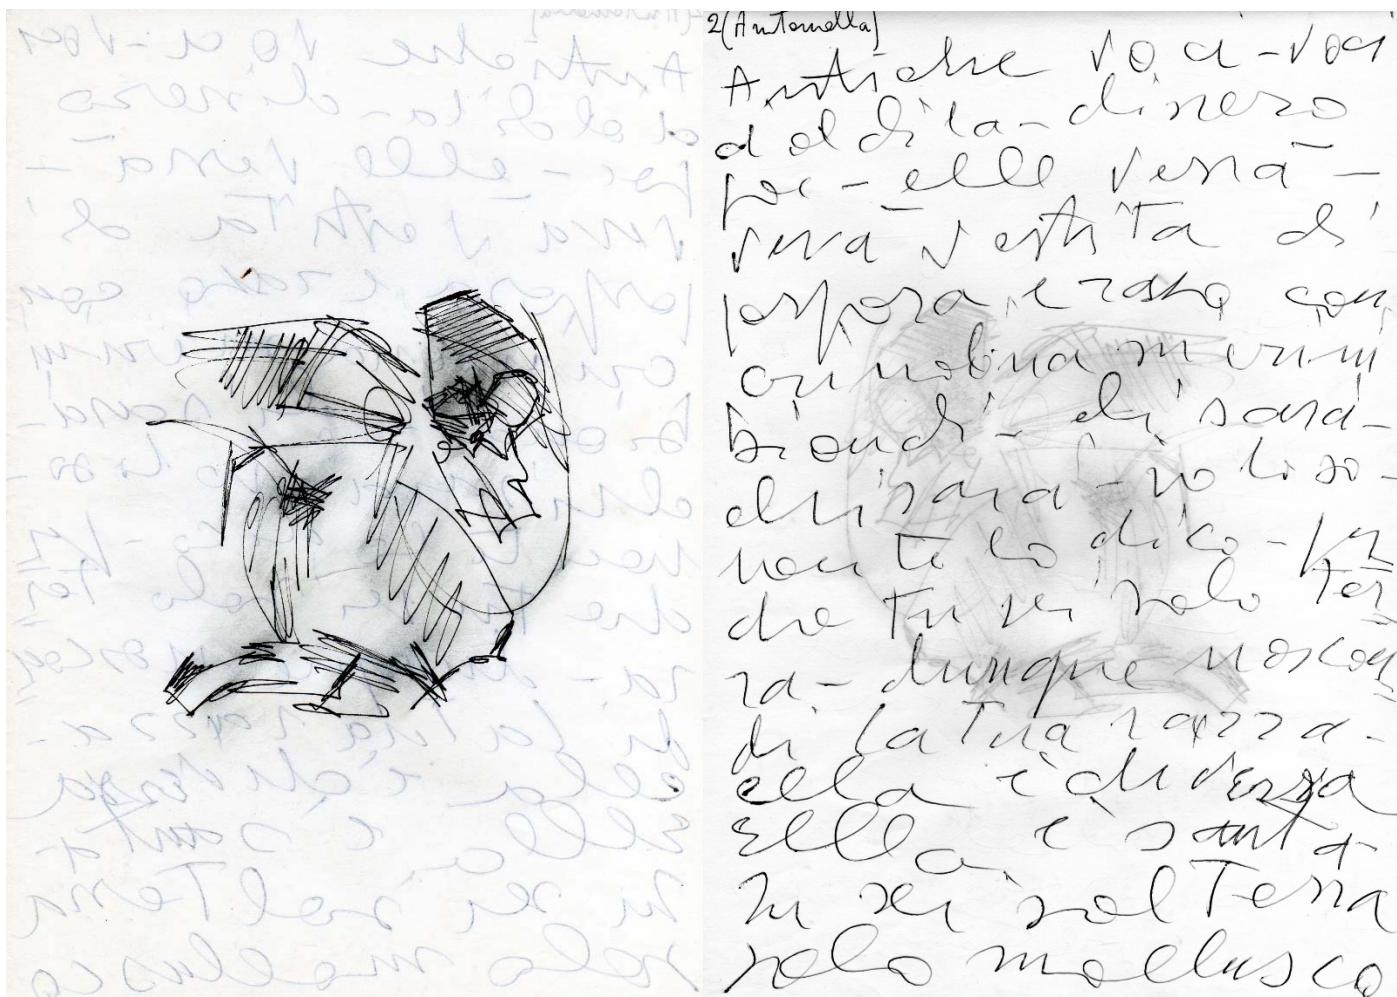 2(Antonella)
Antiche voci-voci
d aldila-dissero
poi-ella verrà-
verrà vestita di
porpora e raso con
biondi-chi sarà-
chi sarà-io lo so-
non te lo dico-per
che tu sei solo Ter
ra-dunque nascon
di la tua razza-
ella è diversa
Ella è santa-
tu sei sol Terra
solo mollusco